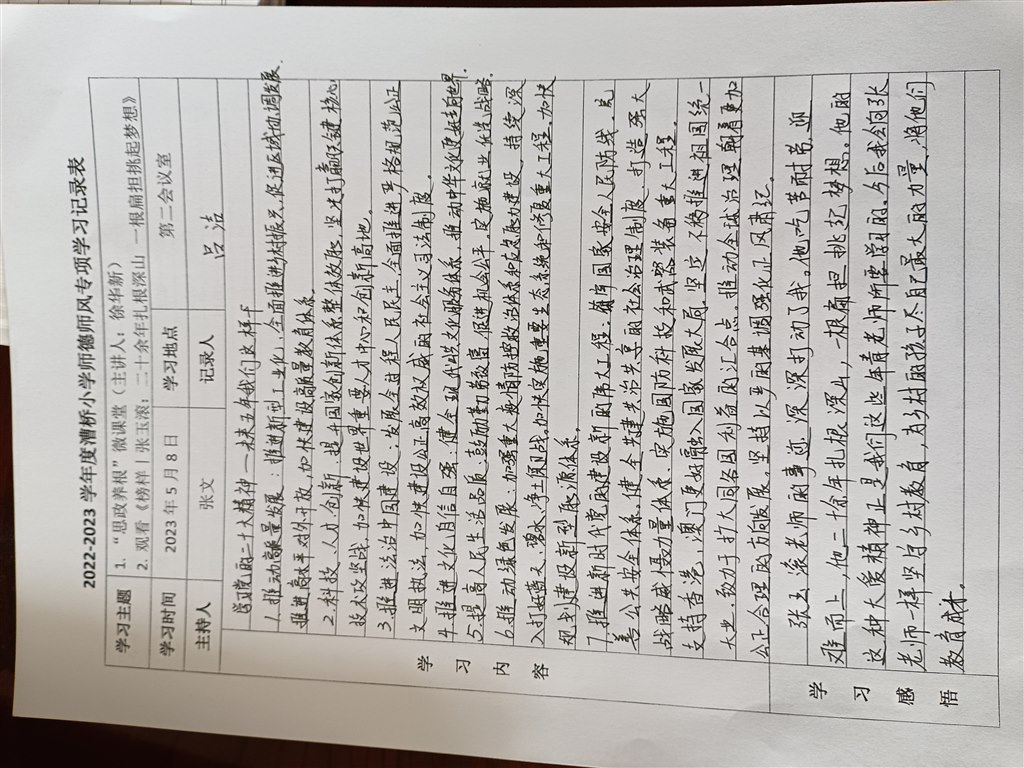 2022-2023 学年度漕桥小学师德师风专项学习记录表
学习主题 1. “思政养根”微课堂（主讲人：徐华新）
2. 观看《榜样｜张玉滚：二十余年扎根深山 一根扁担挑起梦想》
学习时间 2023 年 5 月 8 日 学习地点 第二会议室
主持人 张文 记录人 吕洁
学习内容
学习党的二十大精神—未来五年我们这样干
1.推动高质量发展：推进新型工业化，全面推进乡村振兴，促进区域协调发展，
推进高水平对外开放，加快建设高质量教育体系。
2.科技、人力创新：提升国家创新体系整体效能，坚决打赢关键核心
技术攻坚战，加快建设世界重要人才中心和创新高地。
3.推进法治中国建设：发展全过程人民民主，全面推进严格规范公正
文明执法，加快建设公正高效权威的社会主义司法制度。
4.推进文化自信自强：健全现代化文化服务体系，推动中华文化更好走向世界。
5.提高人民生活品质：鼓励勤劳致富，促进机会公平，实施就业优先战略。
6.推动绿色发展：加强重大疫情防控救治体系和应急能力建设，持续深
入打好蓝天、碧水、净土保卫战，加快实施重要生态系统和修复重大工程，加快
规划建设新型能源体系。
7.推进新时代党的建设新的伟大工程：筑牢国家安全人民防线，完
善公共安全体系，健全共建共治共享的社会治理制度，打造强大
战略威慑力量体系，实施国防科技和武器装备重大工程。
支持香港、澳门更好融入国家发展大局，坚定不移推进祖国统一
大业，致力于扩大同各国利益的汇合点，推动全球治理朝着更加
公正合理的方向发展，坚持以严的基调强化正风肃纪。
学习感悟
张玉滚老师的事迹深深打动了我。他吃苦耐劳，迎
难而上，他二十余年扎根深山，一根扁担挑起梦想。他的
这种大爱精神正是我们这些年青老师所要学习的。今后我会向张
老师一样坚守乡村教育，为乡村的孩子尽自己最大的力量，将他们
教育成材。